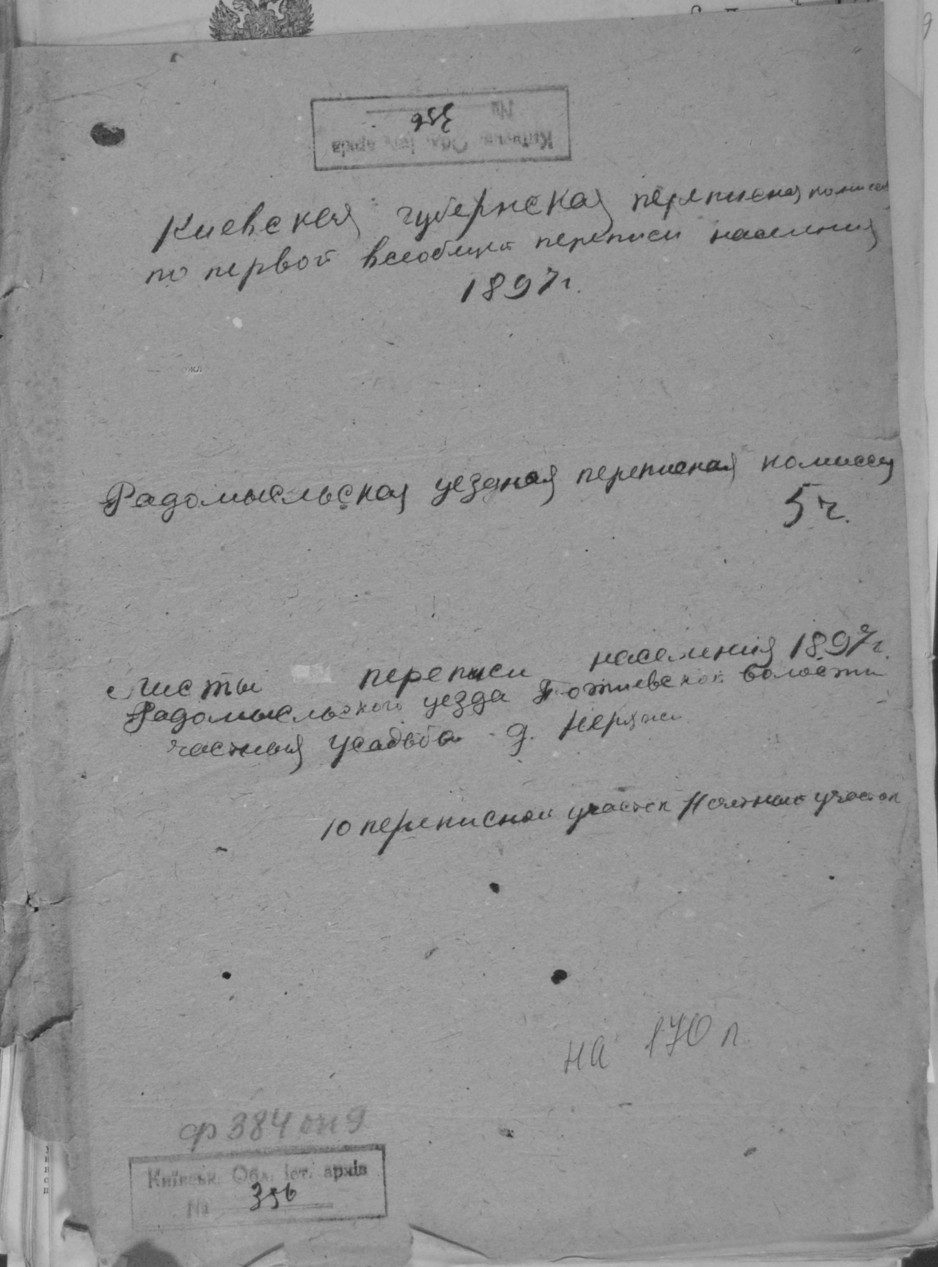 Київськ. Обл. іст. архів
№ 356
Киевская губернская переписная
по первой всеобщей переписи населения
1897г.
Радомысльская уездная переписная комиссия
5 ч.
Листы переписи населения 1897г.
Радомысльского уезда Потиевской волости
частная усадьба д.
10 переписной участок счетный участок
на 170 л.
ф 384 оп 9
Київськ. Обл. іст. архів
№ 356